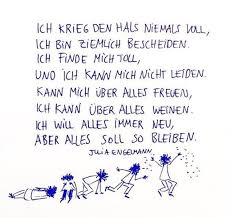 ICH KRIEG DEN HALS NIEMALS VOLL,
ICH BIN ZIEMLICH BESCHEIDEN.
ICH FINDE MICH TOLL,
UND ICH KANN MICH NICHT LEIDEN.
KANN MICH ÜBER ALLES FREUEN,
ICH KANN ÜBER ALLES WEINEN.
ICH WILL ALLES IMMER NEU,
ABER ALLES SOLL SO BLEIBEN.
JULIA ENGELMANN